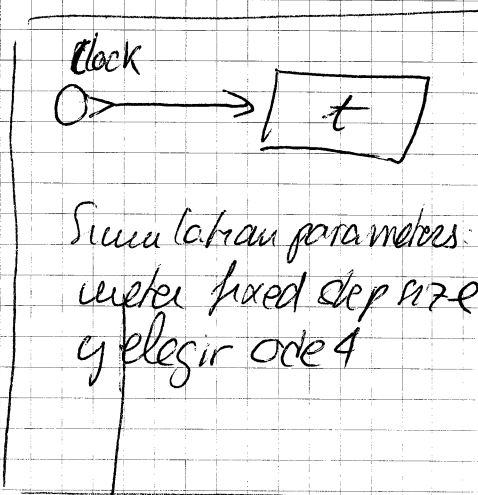 Clock
t
Simulation parameters:
meter fixed step size
y elegir ode4